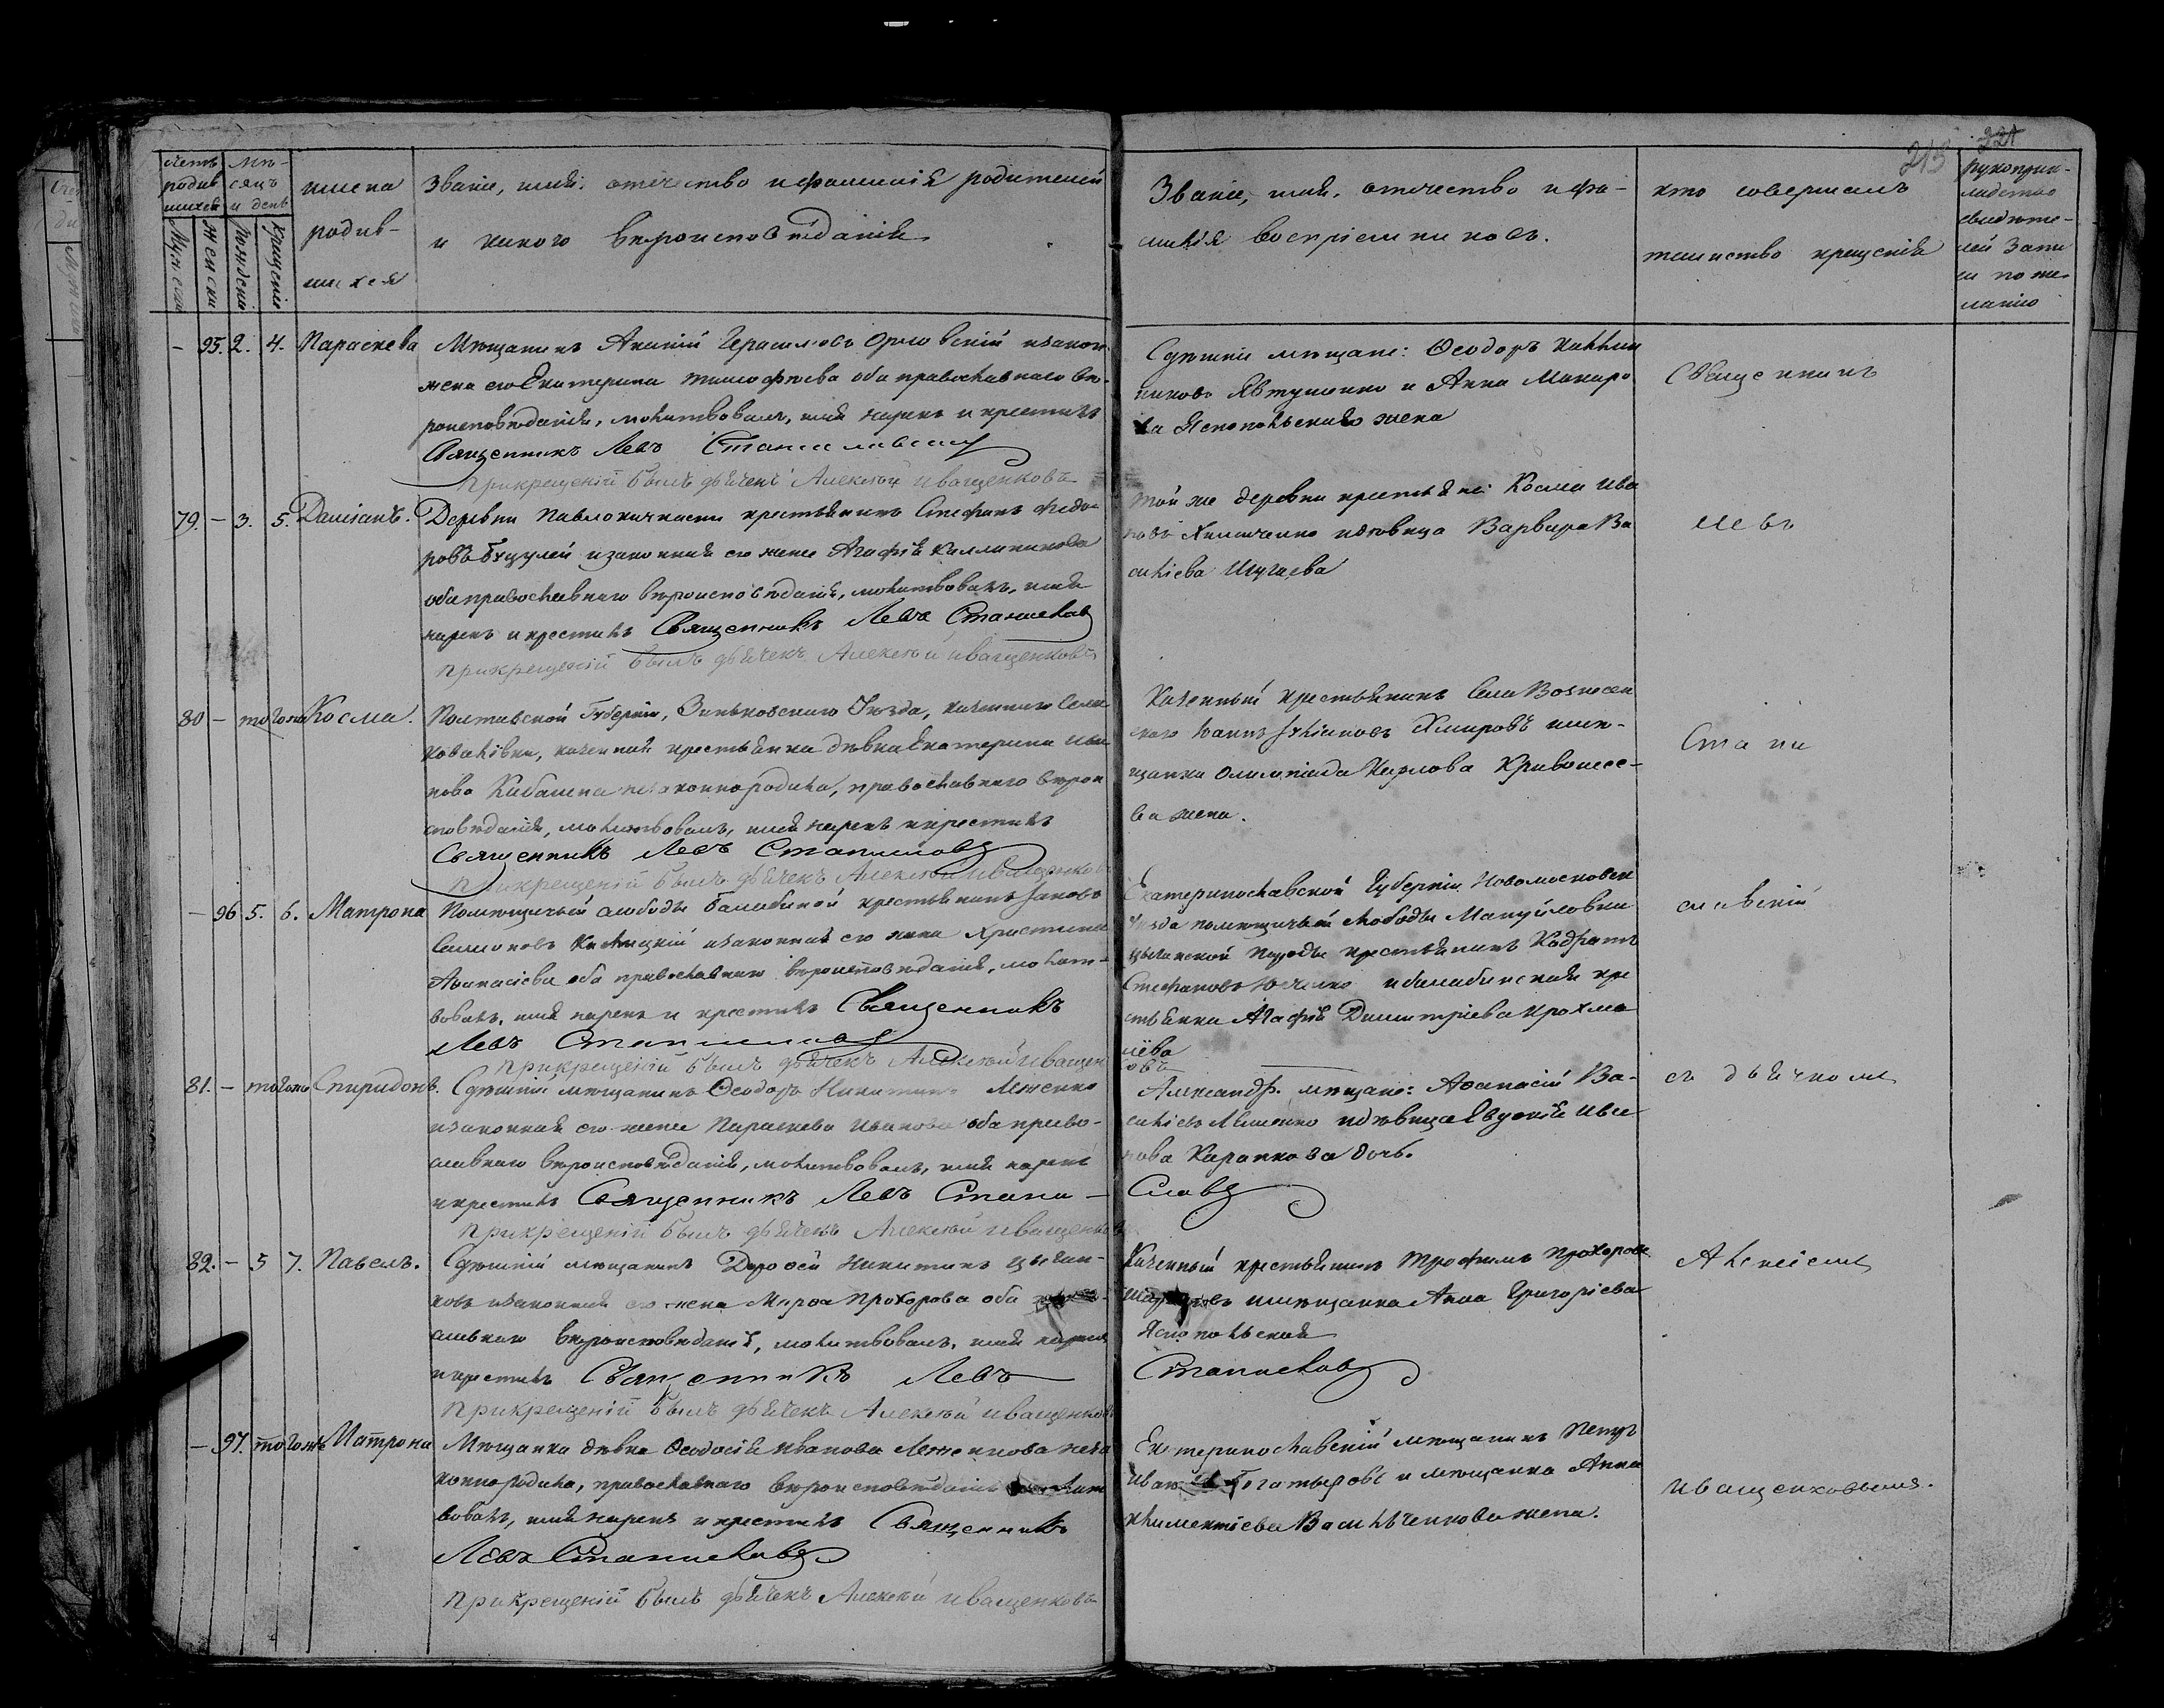 213 221
Счетъ родившихся
Мѣсяцъ и день
Мужеска
Женска
Рожденіе
Крещеніе
имена
родив-
шихся
Званіе, имя, отечество и фамилія родителей
и какого вѣроисповѣданія
Званіе, имя, отечество и фа-
милія воспріемниковъ.
кто совершалъ
таинство крещенія
рукоприк-
ладство
свидѣте-
лей запи
си по же-
ланію
– 95. 2. 4. Параскева
Мѣщанинъ Герасимовъ Орловскій и закон.
жена его Екатерина Тимофѣева оба православнаго вѣ-
роисповѣданія, молитвовалъ, имя нарекъ и крестилъ
Священникъ Левъ Станиславскій
При крещеніи былъ дьячекъ Алексѣй Иващенковъ
Сдѣшніе мѣщане: Ѳеодоръ Каллин
никовъ Явтушенко и Анна Макаро
ва Яснопольскаго жена
79. – 3. 5. Даміанъ.
Деревни Павлокичкаси крестьянинъ Стефанъ Федо
ровъ Буцулей и законная его жена Агафія Каллиникова
оба православнаго вѣроисповѣданія, молитвовалъ, имя
нарекъ и крестилъ Священникъ Левъ Станиславс
При крещеніи былъ дьячекъ Алексѣй Иващенковъ
той же деревни крестьяне: Косма Ива
новъ и вдовица Варвара Ва
силіева Шугаева
80 – тогоже Косма.
Полтавской Губерніи, Зиньковскаго Уѣзда, казеннаго села
Ковалівки, казенная крестьянка дѣвка Екатерина Ива
нова незаконнородила, православнаго вѣрои
сповѣданія, молитвовалъ, имя нарекъ и крестилъ
Священникъ Левъ Станиславс
При крещеніи былъ дьячекъ Алексѣй Иващенковъ
Казенный крестьянинъ села Вознесен
скаго Іоаннъ Іуліановъ Хмаровъ и мѣ-
щанка Олимпіада Карлова Кривошее-
ва жена.
– 96 5. 6. Матрона
Помѣщичьей слободы Балабиной крестьянинъ Іаковъ
Симоновъ и законная его жена Христина
Аѳанасіева оба православнаго вѣроисповѣданія, молит-
вовалъ, имя нарекъ и крестилъ Священникъ
Левъ Станиславс
При крещеніи былъ дьячекъ Алексѣй Иващен
ковъ
Екатеринославской Губерніи Новомосковск
уѣзда помѣщичьей слободы Мануйловки
цыганской породы крестьянинъ Кодратъ
Стефановъ и балабинская кре
стьянка Агафія Димитріева Крохма
лева
81. – тогоже Спиридонъ.
Сдѣшній мѣщанинъ Ѳеодоръ Никитинъ Леженко
и законная его жена Параскева Иванова оба право-
славнаго вѣроисповѣданія, молитвовалъ, имя нарекъ
и крестилъ Священникъ Левъ Стани –
славс
При крещеніи былъ дьячекъ Алексѣй Иващенко
Александр. мѣщане: Аѳанасій Ва-
силіевъ Ляшенко и дѣвица Евдокія Ива
нова Карапкова дочь.
82. – 5 7. Павелъ.
Сдѣшній мѣщанинъ Дороѳей Никитинъ Цыган-
ковъ и законная его жена Марѳа Прохорова оба право-
славнаго вѣроисповѣданія, молитвовалъ, имя нарекъ
и крестилъ Священникъ Левъ
Станиславс
При крещеніи былъ дьячекъ Алексѣй Иващенковъ
Казенный крестьянинъ Трофимъ Прохоров
и мѣщанка Анна Григоріева
Яснопольская
– 97. тогожъ Матрона
Мѣщанка дѣвка Ѳеодосія Иванова Леженкова неза
коннородила, православнаго вѣроисповѣданія молит
вовалъ, имя нарекъ и крестилъ Священникъ
Левъ Станиславс
При крещеніи былъ дьячекъ Алексѣй Иващенковъ
Екатеринославскій мѣщанинъ Петръ
Иванов Богатыровъ и мѣщанка Анна
Климентіева Васильченкова жена.
Священникъ
Левъ
Стани
славскій
съ дьячкомъ
Алексіемъ
Иващенковымъ.